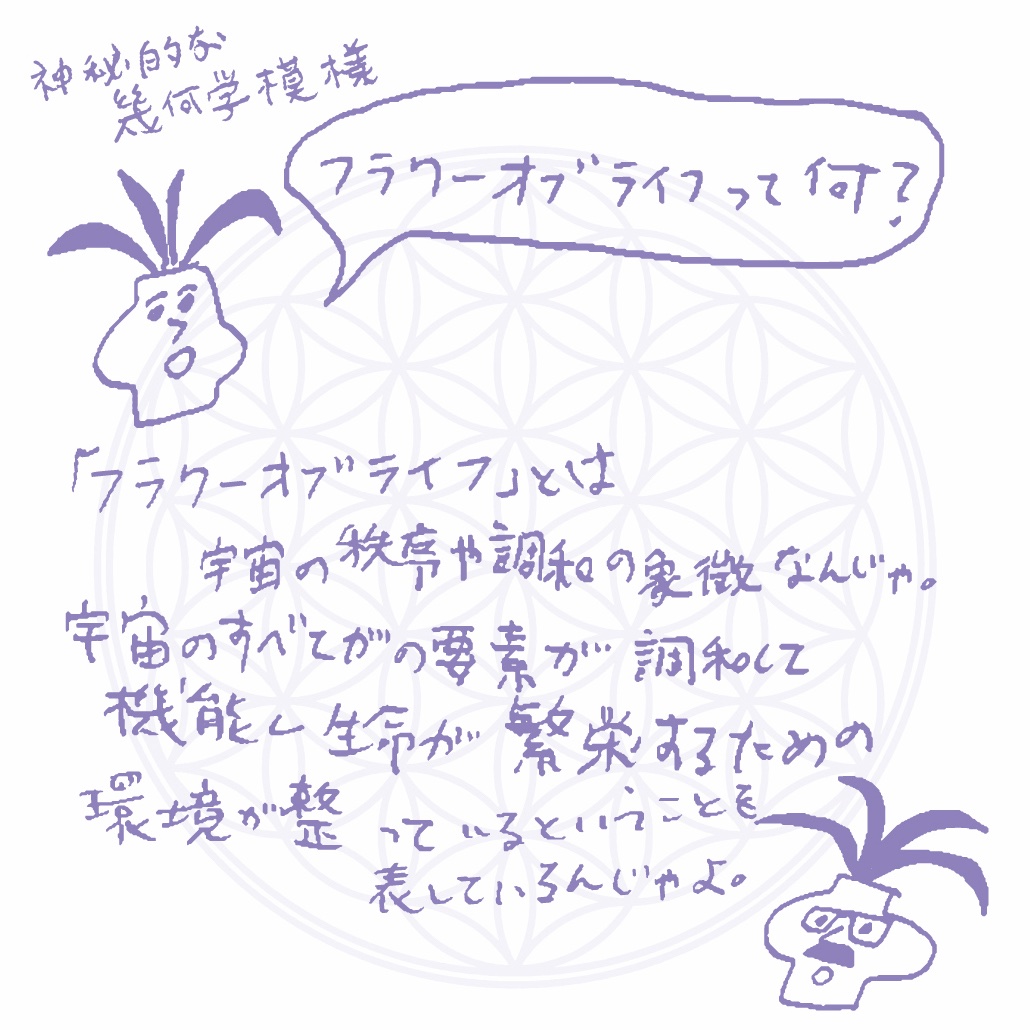 神秘的な
幾何学模様
フラワーオブライフって何？
「フラワーオブライフ」とは
宇宙の秩序や調和の象徴なんじゃ。
宇宙のすべてがの要素が調和して
機能し生命が繁栄するための
環境が整っているということを
表しているんじゃよ。